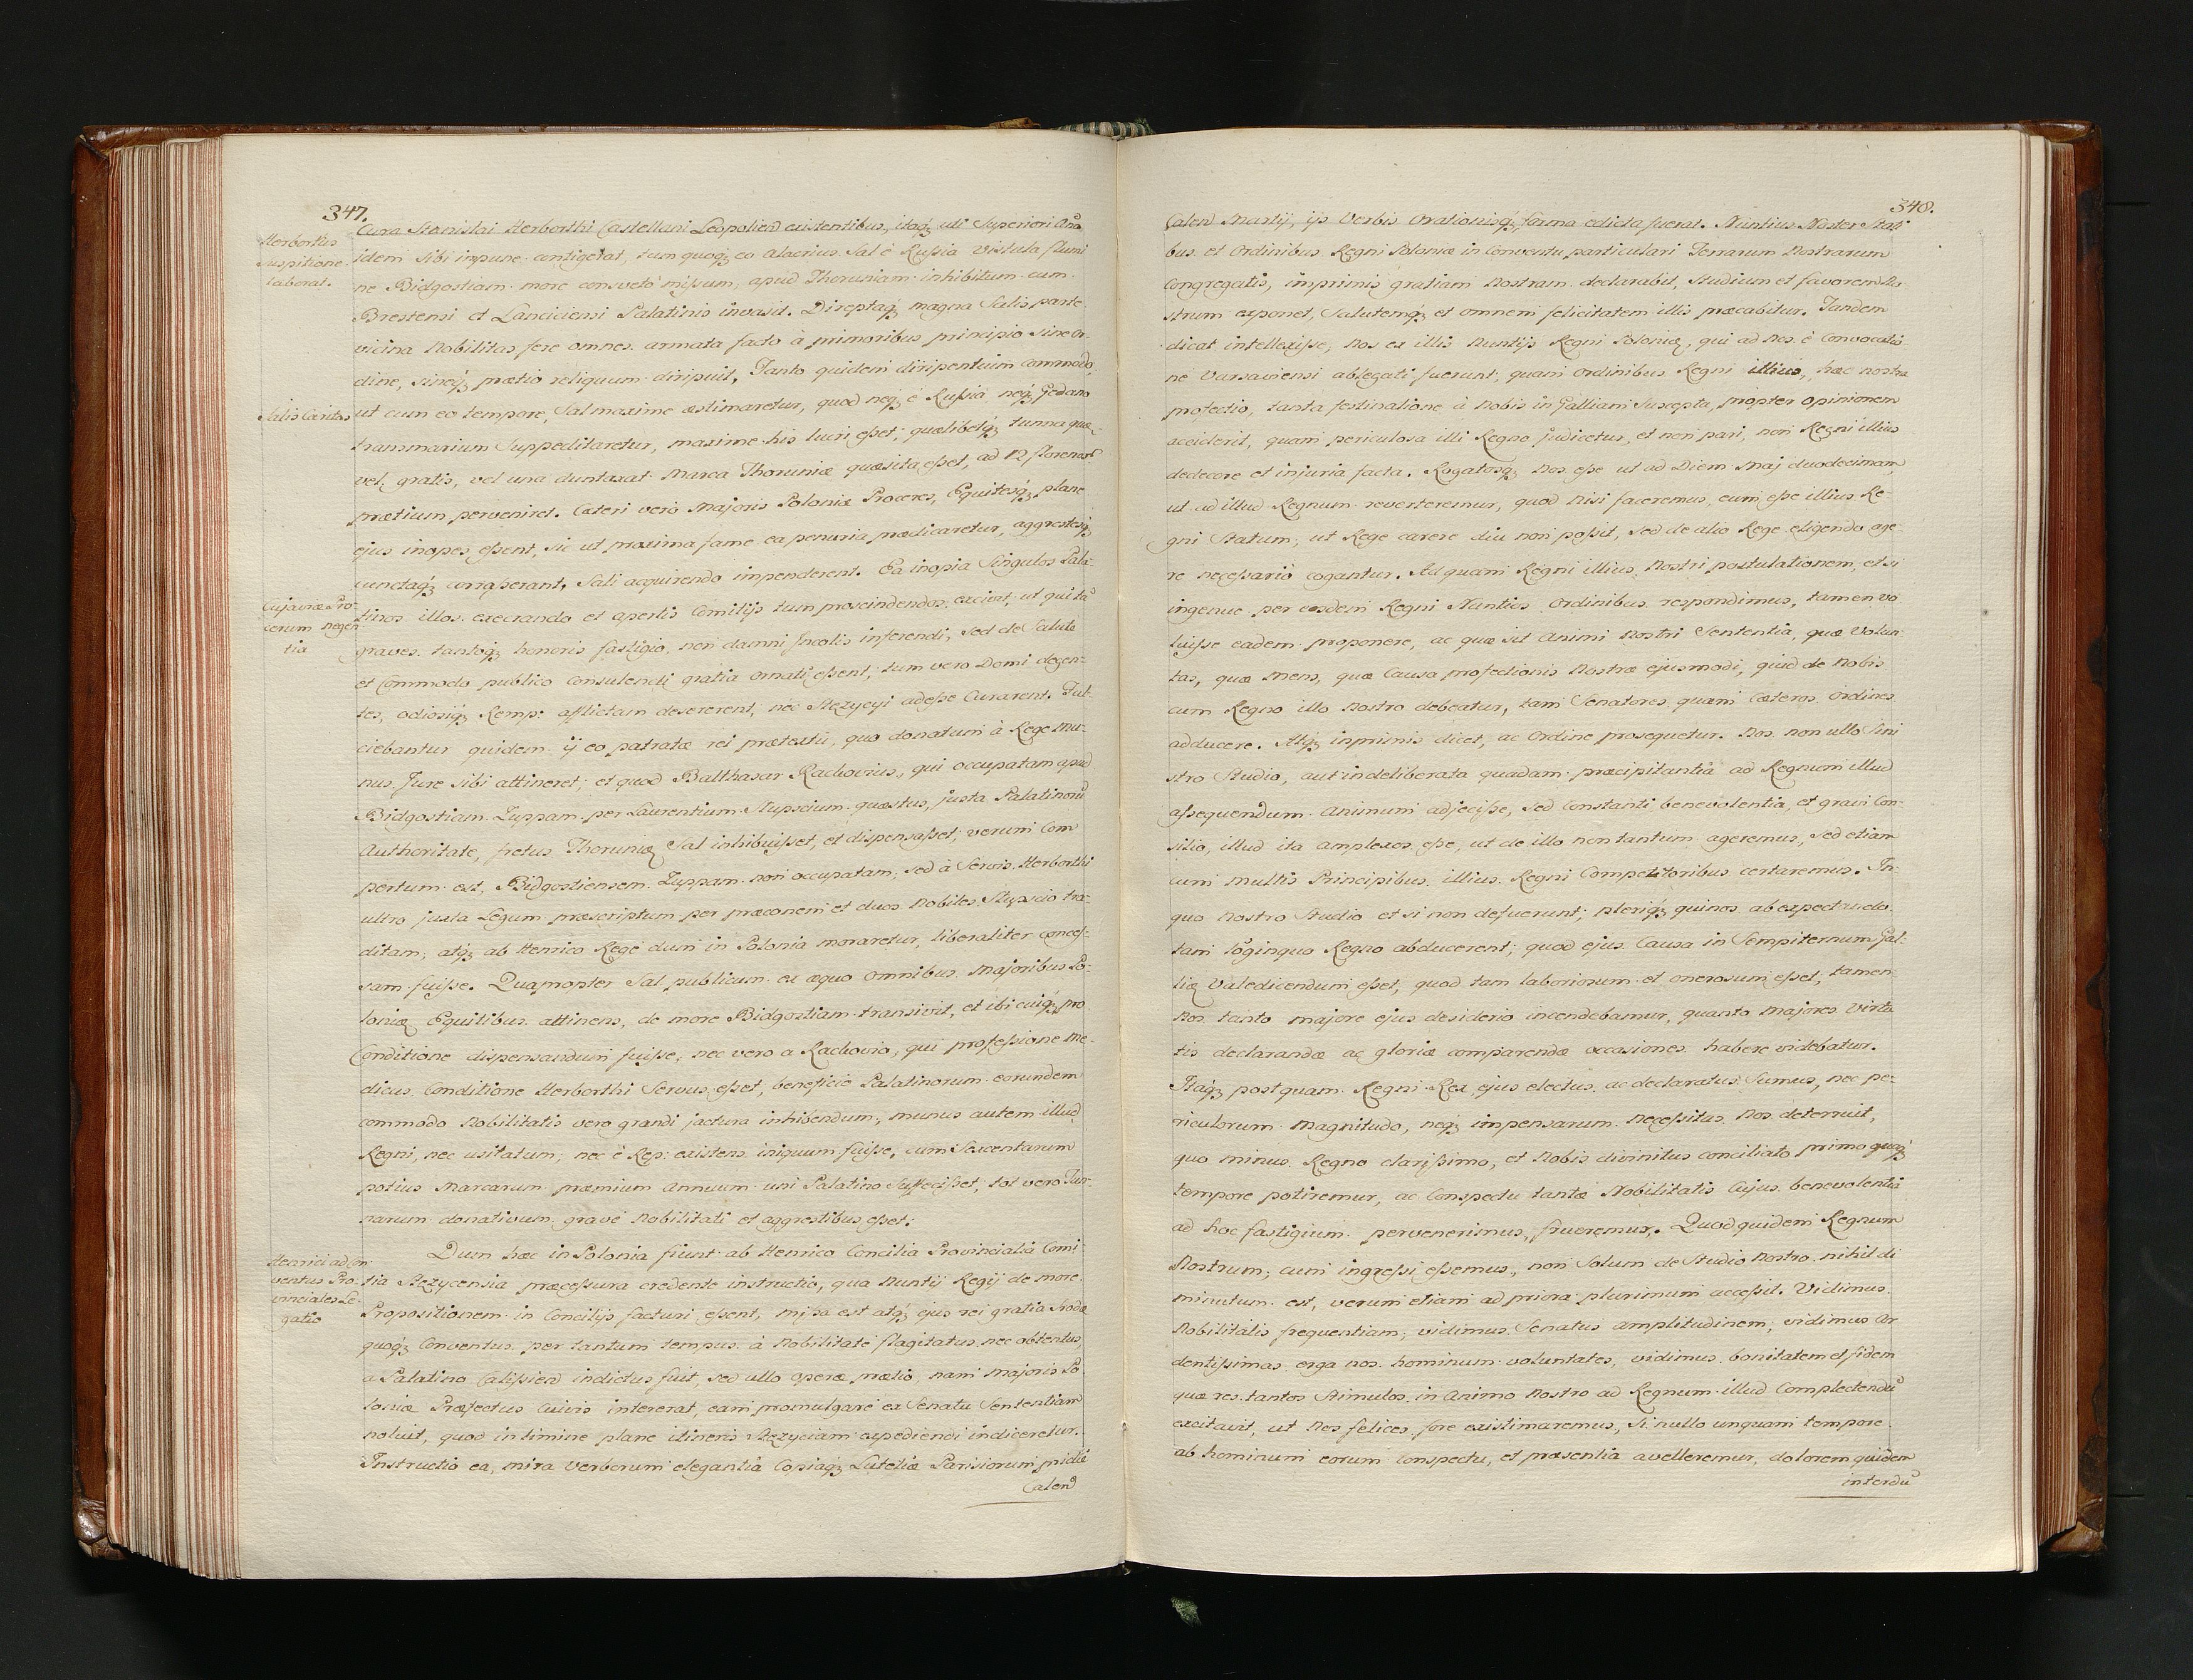 347.
Herborthus
suspitione
laborat.
Cura Stanislai Herborthi Castellani Leopolien existentibus, itaq; uti Superiori Ano
idem sibi impune contigerat, tum quoq; eo alacrius Sal è Russia Vistula flumi
ne Bidgostiam more consveto missum, apud Thoruniam inhibitum cum
Brestensi et Lanciciensi Palatinis invasit. Direptaq; magna Salis parte
vicina Nobilitas fere omnes armata facto à primoribus principio sine or-
dine, sineq; prætio reliquum diripuit, Tanto quidem diripentium commodo,
Salis Caritas
ut cum eo tempore, Sal maxime æstimaretur, quod neq; è Russia neq; Gedano
transmarinum Suppeditaretur, maxime his lucri esset; quælibetq; tunna quæ
vel gratis, vel una duntaxat Marca Thoruniæ quæsita esset, ad 12 florenor
prætium perveniret. Cæteri verò Majoris Poloniæ Proceres, Equitesq; plane
ejus inopes essent, sic ut maxima fame ea penuria prædicaretur, aggrestesq;
cunctaq; corraserant, Sali acquirendo impenderent. Ea inopia Singulos Pala-
Cujaviæ Pro-
cerum negen
tia
tinos illos execrando et apertis Comitijs tum proscindendos excivit, ut qui ta
graves tantoq; honoris fastigio, non damni Incolis inferendi, sed de Salute
et Commodo publico Consulendi gratia ornati essent; tum vero Domi degen-
tes, odiosiq; Remp: afflictam desererent, nec Stezycyi adesse Curarent. Ful-
ciebantur quidem ij eo patratæ rei prætextu, quo donatum à Rege mu-
nus Jure sibi attineret; et quod Balthasar Rachovius, qui occupatam apud
Bidgostiam Zuppam per Laurentium Stupscium quæstus, juxta Palatinoru
Authoritate, fretus Thoruniæ Sal inhibuisset, et dispensasset; verum Com
pertum est, Bidgostiensem Zuppam non occupatam, sed à Servis Herborthi
ultro juxta Legum præscriptum per præconem et duos Nobiles Stupscio tra-
ditam, atq; ab Henrico Rege dum in Polonia moraretur, liberaliter conces-
sam fuisse. Quamonter Sal publicum ex æquo omnibus Majoribus Po-
loniæ Equitibus attinens, de more Bidgostiam transierit, et ibi cuiq; pro
Conditione dispensandum fuisse, nec vero a Rachovio, qui professione Me-
dicus, Conditione Herborthi Servus esset, beneficio Palatinorum eorundem
commodo Nobilitatis vero grandi jactura inhibendum, munus autem illud
Regni, nec usitatum, nec è Rep: existens iniquum fuisse, cum Sexcentarum
potius Marcarum præmium annuum uni Palatino Suffecisset, tot vero Tun-
narum donativum grave Nobilitati et aggrestibus esset:
Henrici ad con
ventus Pro-
vinciales Le-
gatio
Dum hæc in Polonia fiunt ab Henrico Concilia Provincialia Comi
tia Stezycensia præcessura credente instructio, qua Nuntij Regij de more
Propositionem in Concilijs facturi essent, missa est atq; ejus rei gratia Srodæ
quoq; Conventus per tantum tempus à Nobilitate flagitatus nec obtentus,
a Palatino Calissien indictus fuit, sed ullo operæ prætio, nam Majoris Po-
loniæ Præfectus Cuivis intererat, eam promulgare ex Senatu Sententiam
noluit, quod in limine plane itineris Stezyciam expediendi indiceretur.
Instructio ea, mira Verborum elegantiâ Copiaq; Lutetiæ Parisiorum pridie
Calen
348.
Calen Martij, ijs Verbis Orationisq; forma edicta fuerat. Nuntius Noster Stati
bus et Ordinibus Regni Poloniæ in Conventu particulari Terrarum Nostrarum
Congregatis, imprimis gratiam Nostram declarabit, Studium et favorem No
strum exponet, Salutemq; et omnem felicitatem illis præcabitur. Tandem
dicat intellexisse, Nos ex illis Nuntijs Regni Poloniæ, qui ad Nos è Convocatio
ne Varsaviensi ablegati fuerunt, quam Ordinibus Regni illius, hæc nostra
profectio, tanta festinatione à Nobis in Galliam Suscepta, propter opinionem
acciderit, quam periculosa illi Regno judicetur, et non pari, non Regni illius
dedecore et injuria facta. Rogatosq; Nos esse ut ad Diem Maj duodecimam
ut ad illud Regnum reverteremur, quod Nisi faceremus, eum esse illius Re-
gni Statum, ut Rege carere diu non possit, sed de alio Rege eligendo age-
re necessariò cogantur. Ad quam Regni illius Nostri postulationem, et si
ingenue per eosdem Regni Nuntios Ordinibus respondimus, tamen vo
luisse eadem proponere, ac quæ sit Animi Nostri Sententia, quæ Volun-
tas, quæ Mens, quæ Causa profectionis Nostræ ejusmodi, quid de Nobis
cum Regno illo Nostro debeatur, tam Senatores quam Cæteros Ordines
adducere. Atq; inprimis dicet, ac Ordine prosequetur. Nos non ullo Sini
stro Studio, aut indeliberata quadam præcipitantiâ ad Regnum illud
assequendum Animum adjecisse, sed Constanti benevolentia, et gravi Con-
silio, illud ita Amplexos esse, ut de illo non tantum ageremus, sed etiam
cum Multis Principibus illius Regni Competitoribus certaremus. In-
quo Nostro Studio et si non defuerunt; pleriq; qui nos ab expectando
tam logìnquo Regno abducerent; quod ejus Causa in Sempiternum Gal-
liæ Valedicendum esset, quod tam laboriosum et onerosum esset, tamen
Nos tanto majore ejus desiderio incendebamur, quanto Majores Virtu
tis declarandæ ac gloriæ comparendæ occasiones habere videbatur.
Itaq; postquam Regni Rex ejus electus ac declaratus Sumus, nec pe-
riculorum Magnitudo, neq; impensarum Necessitas Nos deterruit,
quo minus Regno clarissimo, et Nobis divinitus conciliato primo quoq;
tempore potiremur, ac Conspectu tantæ Nobilitatis Cujus benevolentiâ
ad hoc fastigium pervenerimus, frueremur. Quod quidem Regnum
Nostrum, cum ingressi essemus, non Solum de Studio Nostro nihil di
minutum est, verum etiam ad priora plurimum accessit. Vidimus
Nobilitatis frequentiam, vidimus Senatus amplitudinem, vidimus Ar
dentissimas erga nos hominum voluntates, vidimus bonitatem et fidem
quæ res tantos Stimulos in Animo Nostro ad Regnum illud Complectendu
excitavit, ut Nos felices fore existimaremus, Si nullo unquam tempore
ab hominum eorum Conspectu, et præsentia avelleremur, dolorem quidem
interdu